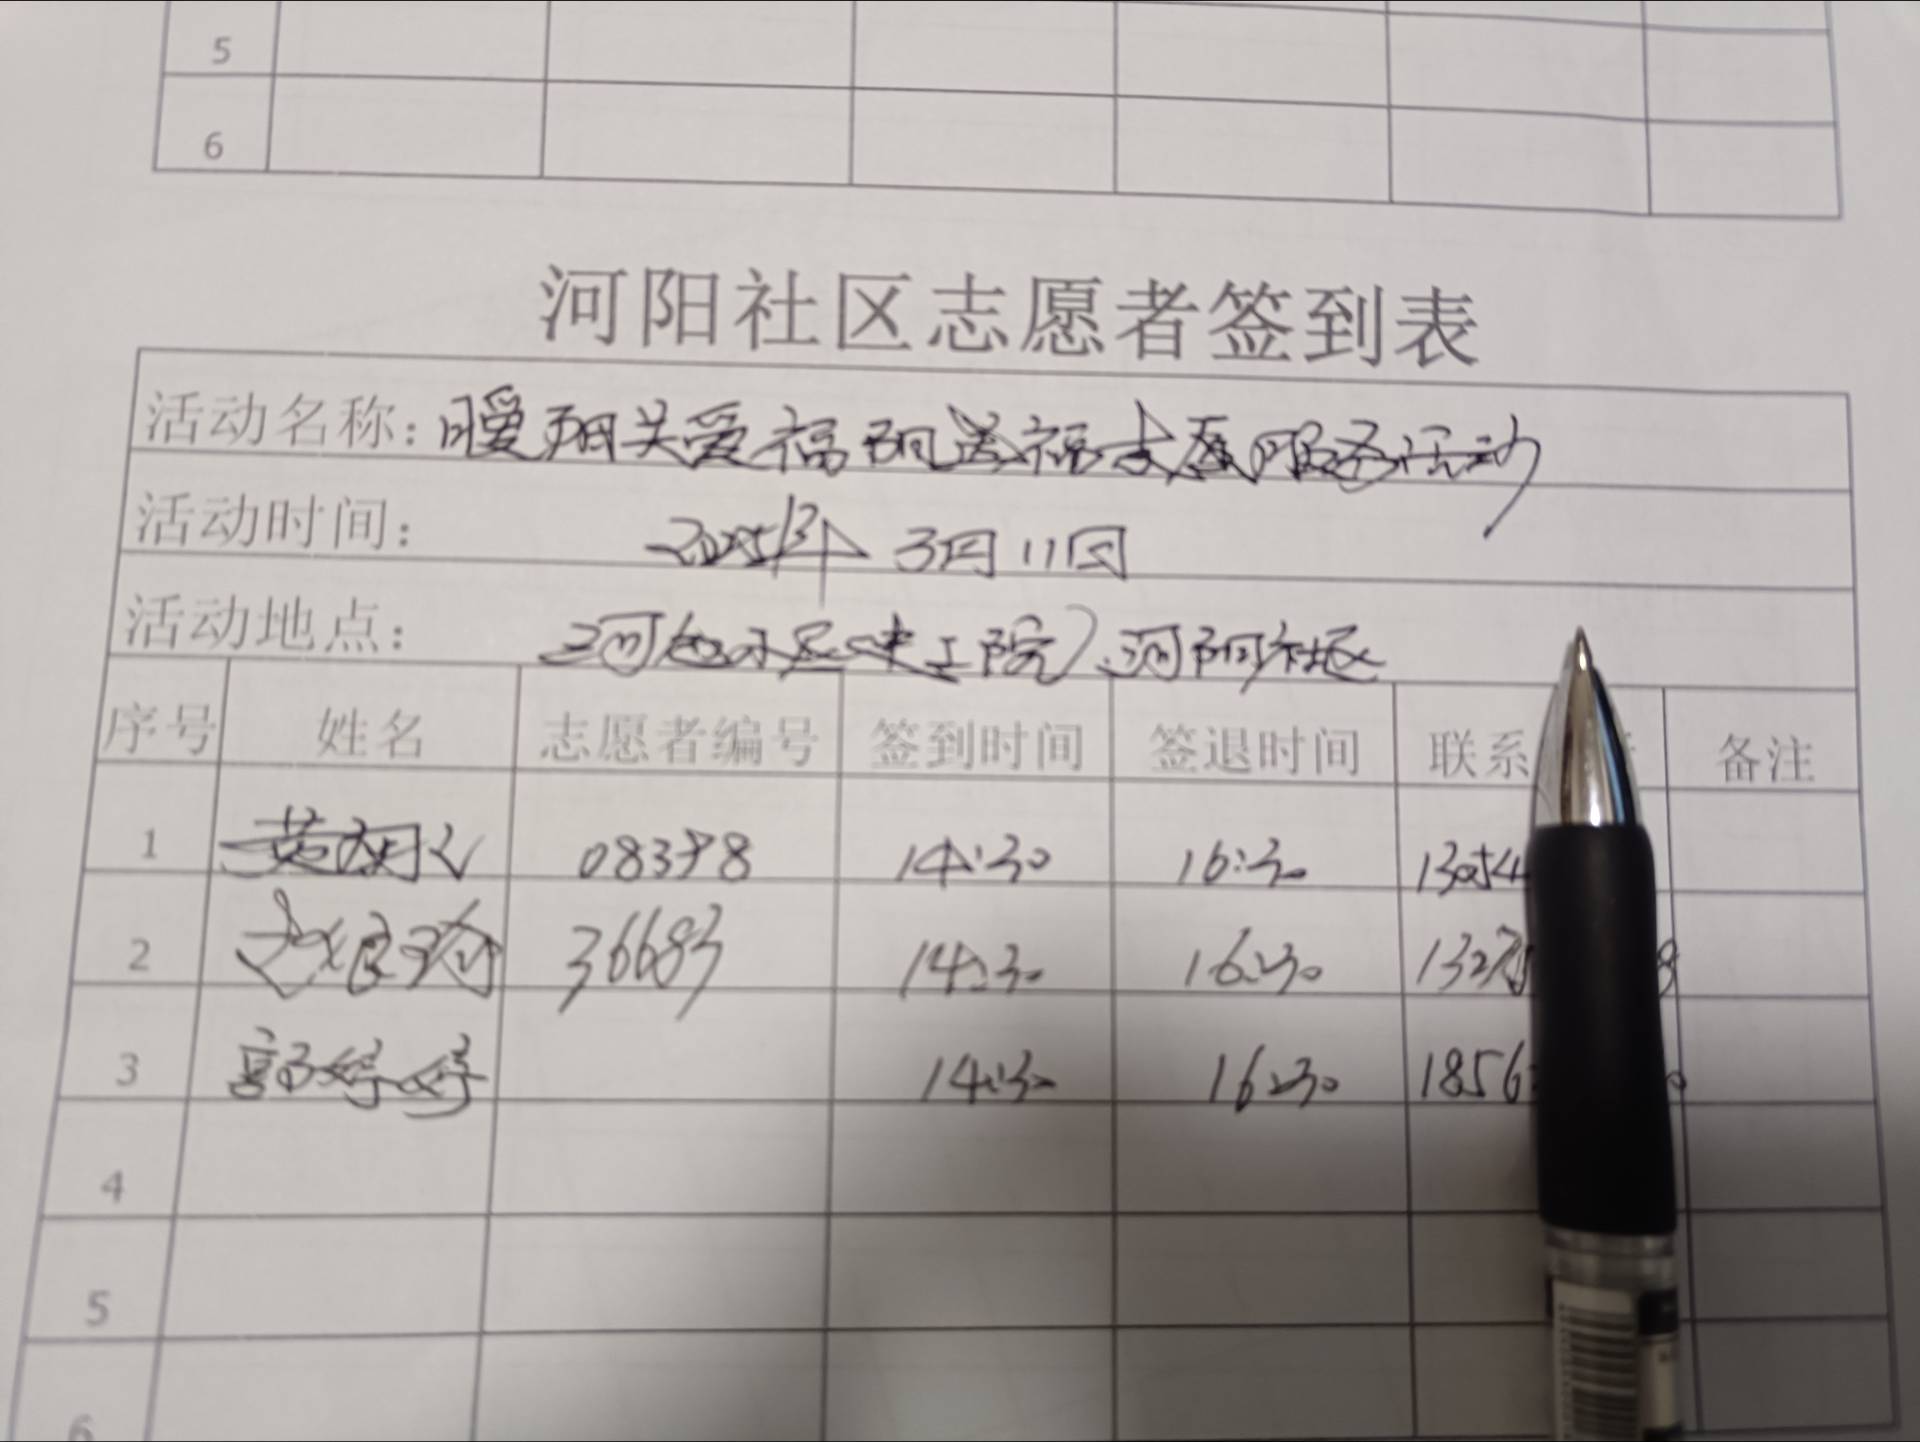 5
6
河阳社区志愿者签到表
活动名称：暖阳关爱福阳送福志愿服务活动
活动时间： 2025年 3月11日
活动地点： 河阳社区
序号 姓名 志愿者编号 签到时间 签退时间 联系 备注
1 08398 14:30 16:30 13054
2 36683 14:30 16:30 1327 8
3 郭婷婷 14:30 16:30 1856 0
4
5
6